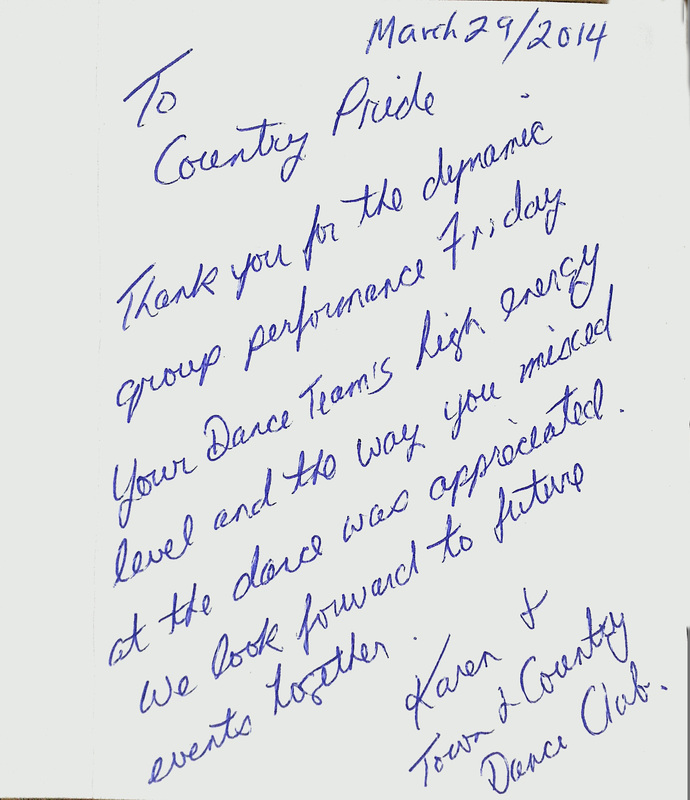 March 29/2014
To
Country Pride
Thank you for the dynamic
group performance Friday
Your Dance Team's high energy
level and the way you mixed
at the dance was appreciated.
We look forward to future
events together.
Karen &
Town & Country
Dance Club.